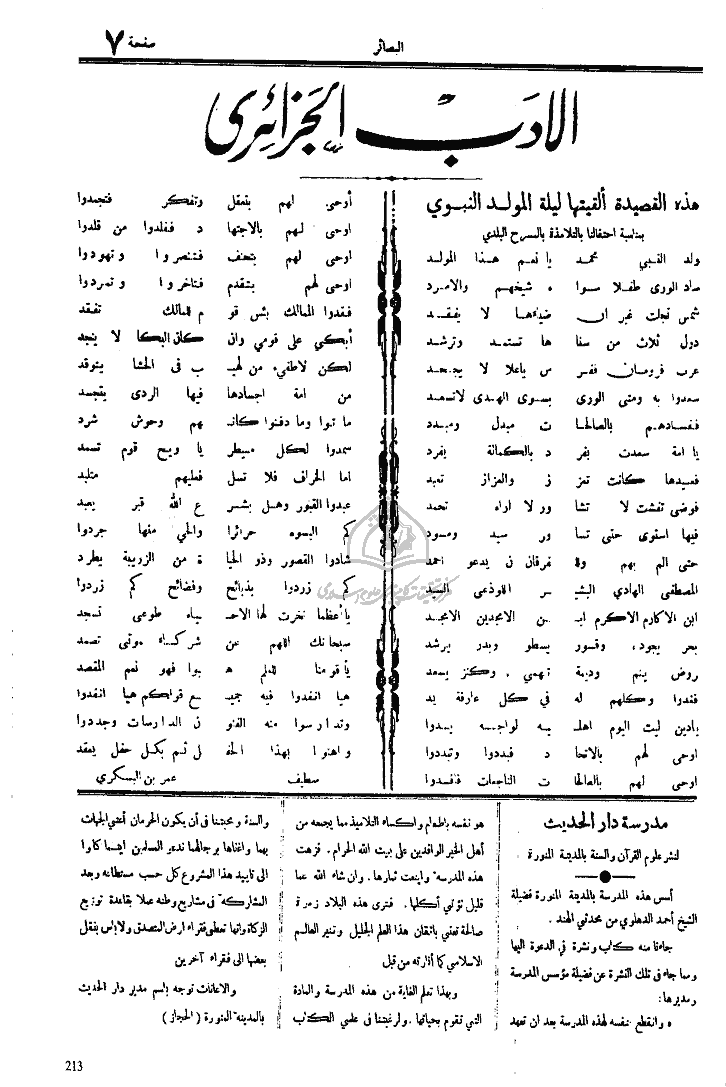 صفحة ٧
البصائر
الادب الجزائري
هذه القصيدة ألقيتها ليلة المولد النبوي
بمناسبة احتفالنا بالتلامذة بالمسرح البلدي
ولد النبي محمد يا نعم هذا المولد
ساد الورى طفلا سوا ه شيخهم والامرد
شمس تجلت غير ان ضياءها لا يفقد
دول ثلاث من سنا ها تستمد وترشد
عرب فرومان ففر س باعلا لا يجحد
سعدوا به ومتى الورى بسوى الهدى لاتسعد
ففسادهم بالصالحا ت مبدل ومبدد
يا امة سعدت بفر د بالكمالة يفرد
فعبيدها كانت تعز ز والعزاز تعبد
فوضى تفشت لا تشا ور لا اراه تحمد
فيها استوى حتى تسا ور سيد ومسود
حتى الم بهم وفا فرقان ن يدعو احمد
المصطفى الهادي البشيـ ر اللوذعي السيد
ابن الاكارم الاكرم ابـ ن الامجدين الامجد
بحر يجود، وقسور يسطو وبدر يرشد
روض ينم وديمة تهمي، وكنز يسعد
فغدوا وكلهم له في كل عارفة يد
يادين ليت اليوم اهلـ يه لواجبه يدوا
اوحى لهم بالاتحا د فبددوا وتبددوا
اوحى لهم بالصالحا ت الناجعات فافسدوا
أوحى لهم بتعقل وتفكر فتجمدوا
اوحى لهم بالاجتها د ففلدوا من قلدوا
اوحى لهم بتحنف فتنصروا وتهودوا
اوحى لهم بتقدم فتاخروا وتمردوا
فقدوا الممالك بئس قو م للمالك تفقد
أبكي على قومي وان كان البكا لا ينجد
لكن لاطفيء من لهيـ ب في الحشا يتوقد
من امة اجسادها فيها الردى يتجسد
ما تبوا وما دفنوا كانـ هم وحوش شرد
سمدوا لكل مسيطر يا ويح قوم تسمد
اما الخراف فلا تسل فعليهم متلبد
عبدوا القبور وهل بشر ع الله قبر يعبد
كم البسوه حرائرا والحي منها جردوا
شادوا القصور وذو الحيا ة من الزريبة يطرد
كم زردوا بذبائح وفضائح كم زردوا
يا أعظما نخرت لها الاحـ ياء طوعى تسجد
سبحانك اللهم عن شركاء موتى تصمد
يا قومنا للعلم هـ بوا فهو نعم المقصد
هيا انفدوا فيه جميـ ع قواكم هيا انفدوا
وتدارسوا منه الفنو ن الدارسات وجددوا
واهنوا بهذا الحفـ ل ثم بكل حفل يعقد
سطيف عمر بن البسكري
مدرسة دار الحديث
لنشر علوم القرآن والسنة بالمدينة المنورة
أسس هذه المدرسة بالمدينة المنورة فضيلة
الشيخ أحمد الدهلوي من محدثي الهند.
جاءنا منه كتاب ونشرة في الدعوة اليها
ومما جاء في تلك النشرة عن فضيلة مؤسس المدرسة
ومديرها:
« وانقطع نفسه لهذه المدرسة بعد ان تعهد
هو نفسه باطعام واكساء التلاميذ مما يجمعه من
أهل الخير الوافدين على بيت الله الحرام. فزهت
هذه المدرسة وأينعت ثمارها. وان شاء الله عما
قليل تؤتي أكلها. فترى هذه البلاد زمرة
صالحة تعنى باتقان هذا العلم الجليل وتنير العالم
الاسلامي كما أنارته من قبل
وبهذا تعلم الغاية من هذه المدرسة والمادة
التي تقوم بحياتها. ولرغبتنا في علمي الكتاب
والسنة ومحبتنا في أن يكون الحرمان أغنى الجهات
بهما واغناها برجالهما ندعو المسلمين اينما كانوا
الى تأييد هذا المشروع كل حسب مستطاعه وجد
المشاركة في مشاريع وطنه عملا بقاعدة توزيع
الزكاة وانها تعطى فقراء ارض المتصدق ولا بأس بنقل
بعضها الى فقراء آخرين
والاعانات توجه باسم مدير دار الحديث
بالمدينة المنورة (الحجاز)
213